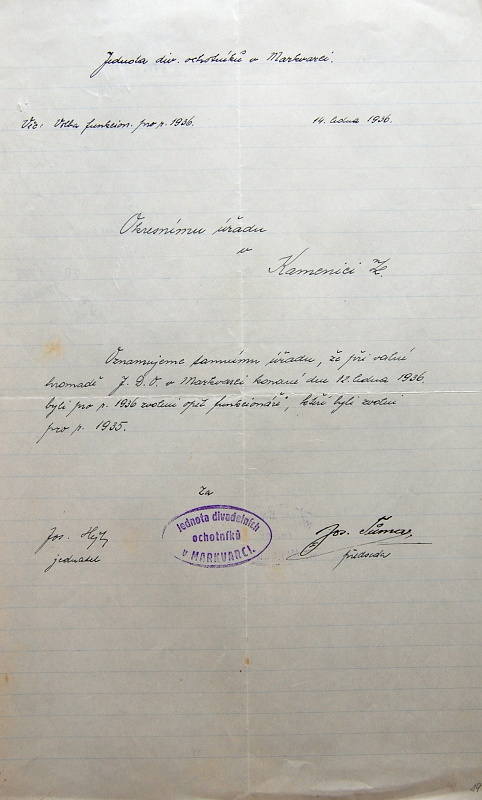 Jednota div. ochotníků v Markvarci.
Věc: Volba funkcion. pro r. 1936.
14. ledna 1936.
Okresnímu úřadu
v
Kamenici n/L.
Oznamujeme tamnímu úřadu, že při valné
hromadě J. D. O. v Markvarci konané dne 12. ledna 1936.
byli pro r. 1936 zvoleni opět funkcionáři, kteří byli zvoleni
pro r. 1935.
Za
Jednota divadelních
ochotníků
v MARKVARCI.
Jos.
jednatel
Jos. Tůma,
předseda